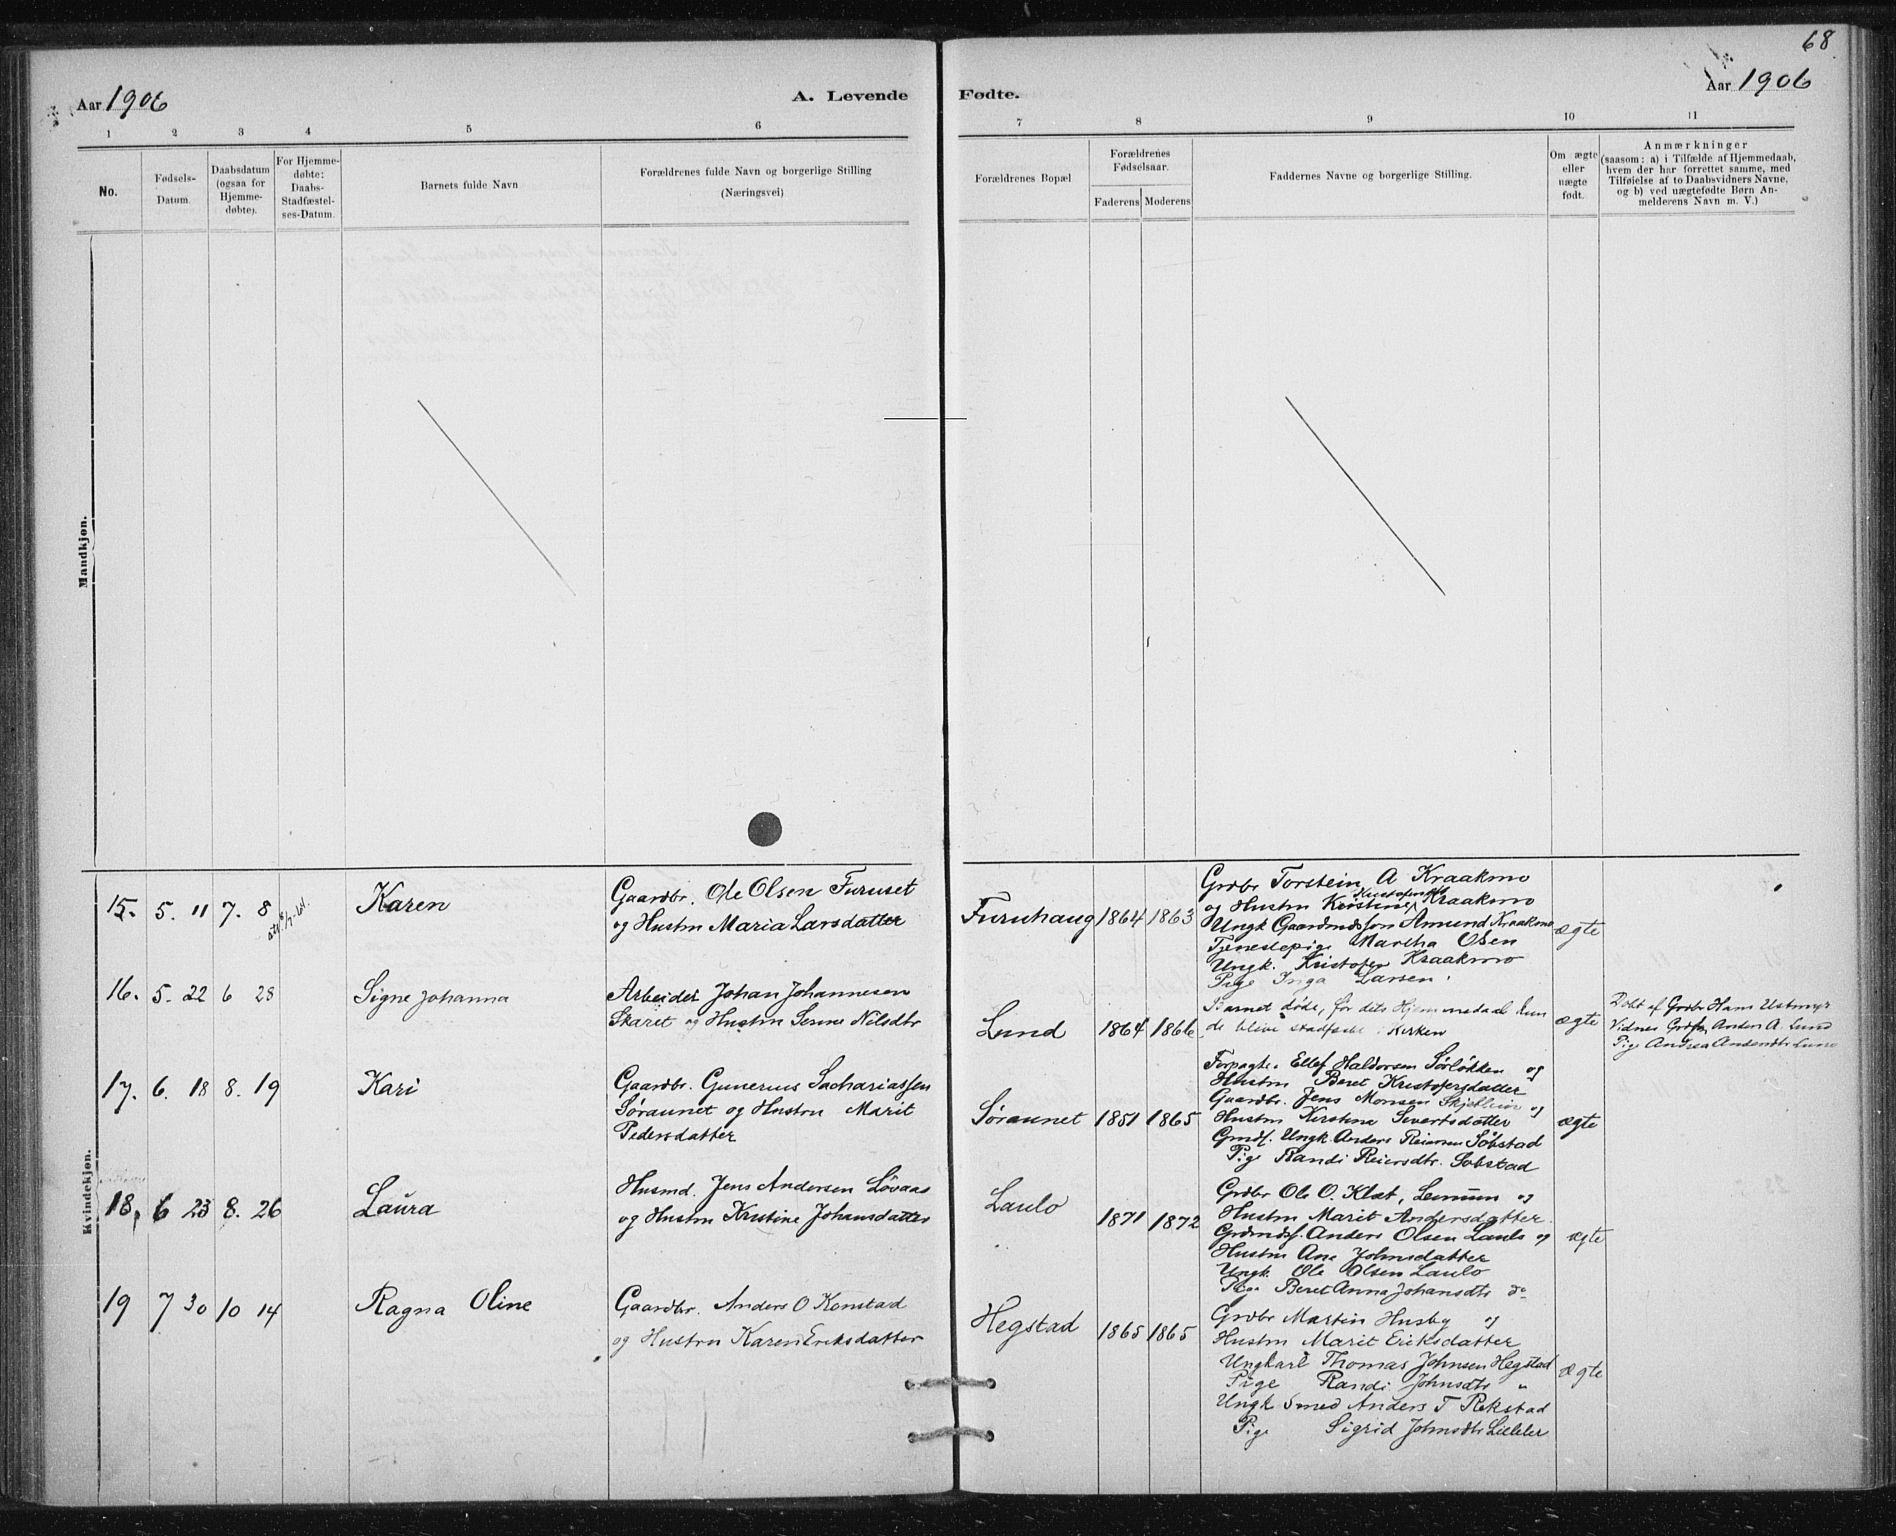 68
Aar 1906
A. Levende
Fødte.
Aar 1906
1 2 3 4 5 6 7 8 9 10 11
No.
Fødsels-
Datum.
Daabsdatum
(ogsaa for
Hjemme-
døbte).
For Hjemme-
døbte:
Daabs-
Stadfæstel-
ses-Datum.
Barnets fulde Navn
Forældrenes fulde Navn og borgerlige Stilling
(Næringsvei)
Forældrenes Bopæl
Forældrenes
Fødselsaar.
Faderens
Moderens
Faddernes Navne og borgerlige Stilling.
Om ægte
eller
uægte
født.
Anmærkninger
(saasom: a) i Tilfælde af Hjemmedaab,
hvem der har forrettet samme, med
Tilføielse af to Daabsvidners Navne,
og b) ved uægtefødte Børn An-
melderens Navn m. V.)
Mandkjøn.
Kvindekjøn.
15. 5. 11 7. 8
Karen
Gaardbr. Ole Olsen Furuset
og Hustru Maria Larsdatter
Furuhaug 1864 1863
Grdbr Torstein A Kraakmo
og Hustru Kirstine Kraakmo
Ungk Gaardmdssøn Amund Kraakmo
Tjenestepige Martha Olsen
Ungk. Kristofer Kraakmo
Pige Inga Larsen
ægte
16. 5. 22 6 28
Signe Johanna
Arbeider Johan Johannesen
Skaret og Hustru Serine Nilsdtr
Lund 1864 1866
Barnet døde, før dets Hjemmedaab kun
de blive stadfæstet i Kirken
ægte
Døbt af Grdbr Hans Ustmyr
Vidner Grdbr Anders A. Lund
Pige Andrea Andersdtr Lund
17. 6. 18 8. 19
Kari
Gaardbr. Gunerius Sachariassen
Søraunet og Hustru Marit
Pedersdatter
Søraunet 1851 1865
Forpagter Ellef Haldorsen Sørløkken og
Hustru Beret Kristofersdatter
Gaardbr. Jens Monsen Skjetlein og
Hustru Kirstina Sivertsdatter
Grmdsf. Ungk. Anders Reiersen Søbstad
Pige Randi Reiersdtr. Søbstad
ægte
18. 6 23 8. 26
Laura
Husmd. Jens Andersen Løvaas
og Hustru Kristine Johansdatter
Laulo
1871 1872
Grdbr Ole O. Klæt, Leinum og
Hustru Marit Andersdatter
Grdmdsf. Anders Olsen Laulo og
Hustru Ane Johnsdatter
Ungk. Ole Olsen Laulo
Pige Beret Anna Johansdtr do
ægte
19 7 30 10 14
Ragna Oline
Gaardbr. Anders O Konstad
og Hustru Karen Eriksdatter
Hegstad 1865 1865
Grdbr Martin Husby og
Hustru Marit Eriksdatter
Ungkarl Thomas Johnsen Hegstad
Pige Randi Johnsdtr "
Ungk Smed Anders T Rekstad
Pige Sigrid Johnsdtr
ægte